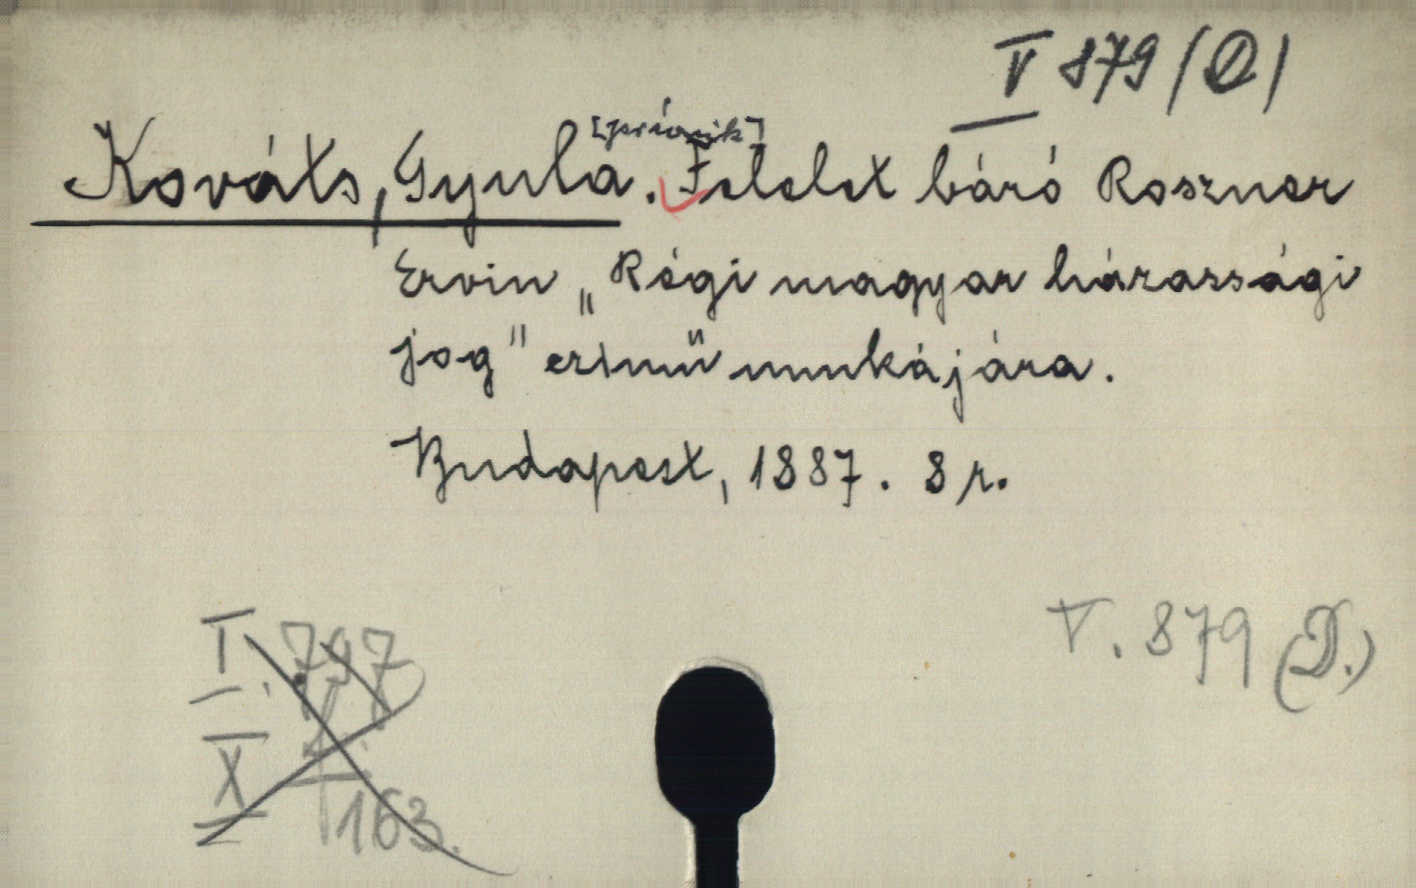 V 879 (D)
Kováts, Gyula. Felelet báró Roszner
Ervin „Régi magyar házassági
jog" czímű munkájára.
Budapest, 1887. 8 r.
V. 879 (D.)
I. 797
X
163.